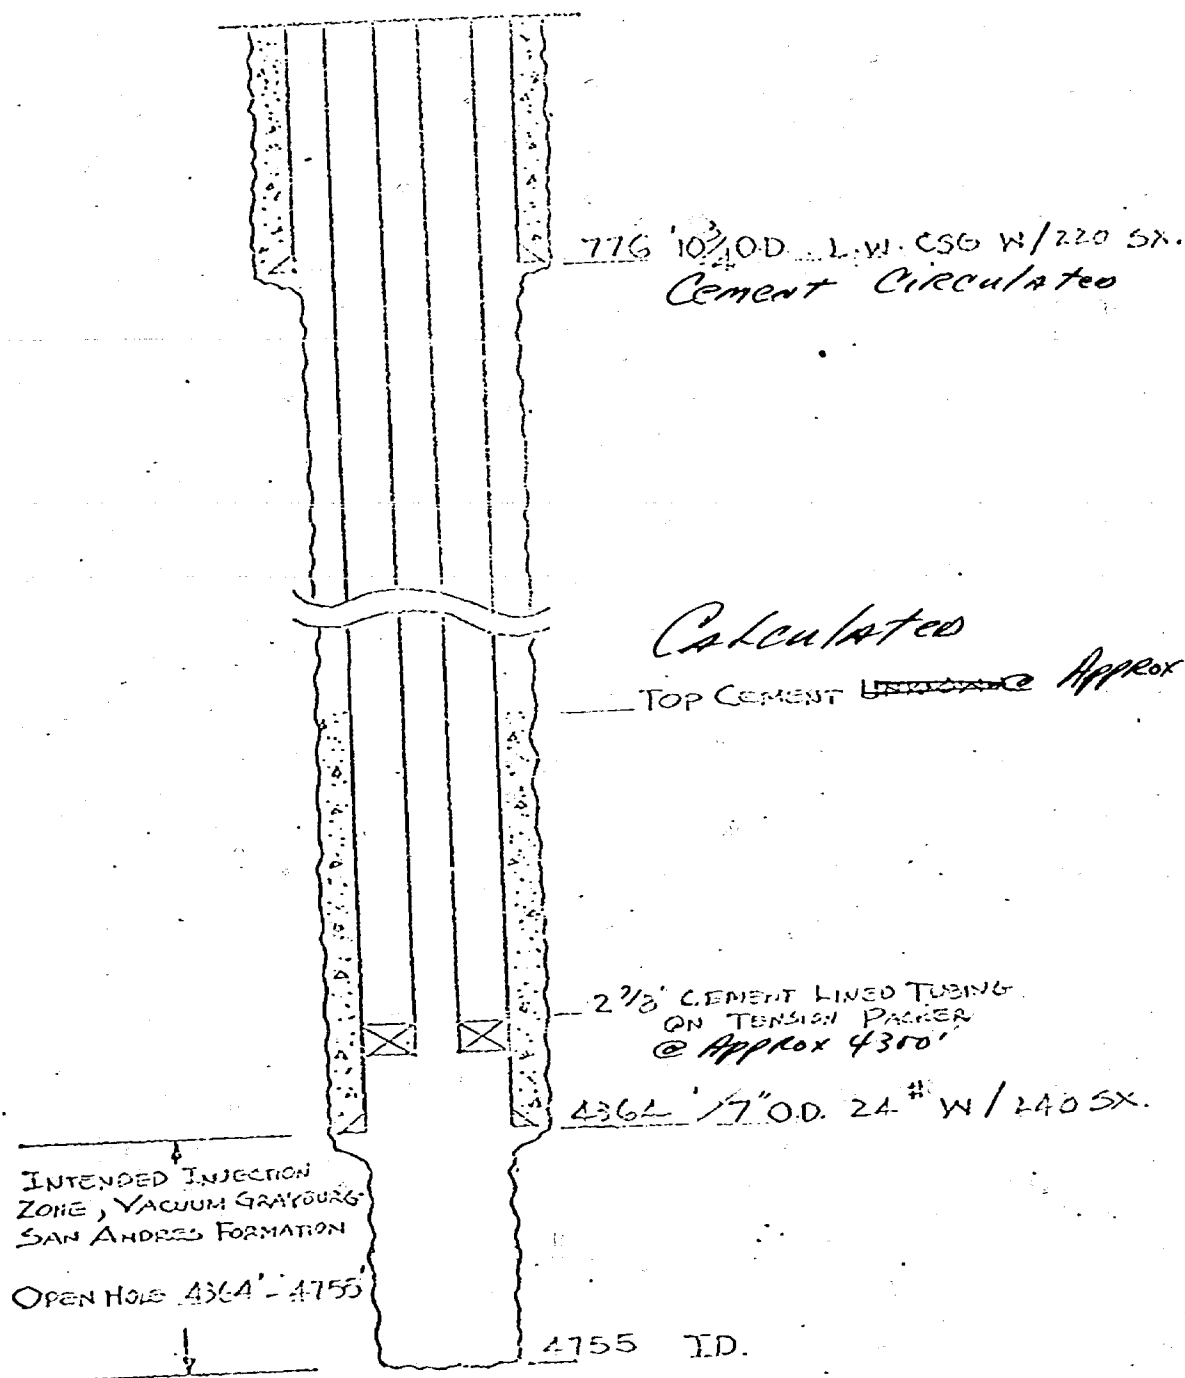 776 '10 3/4 O.D. L.W. CSG W/220 SX.
Cement Circulated
Calculated
TOP CEMENT Approx
2 3/8" CEMENT LINED TUBING
ON TENSION PACKER
@ Approx 4300'
4364 ' 7" O.D. 24 # W/240 SX.
INTENDED INJECTION
ZONE, VACUUM GRAYBURG-
SAN ANDRES FORMATION
OPEN HOLE 4364' - 4755'
4755 T.D.